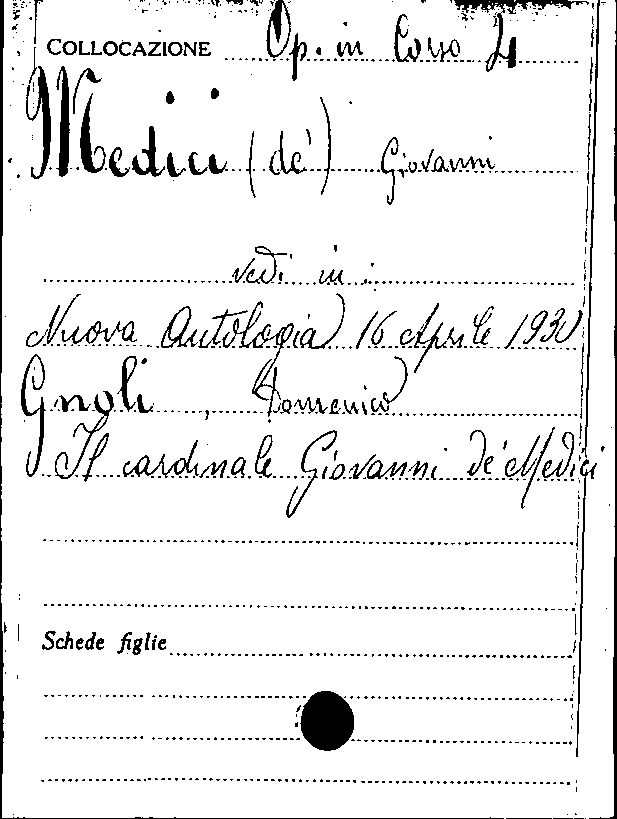 COLLOCAZIONE Op. in Corso 4
Medici (de') Giovanni
vedi in :
Nuova Antologia 16 Aprile 1930
Gnoli, Domenico
Il cardinale Giovanni de' Medici
Schede figlie